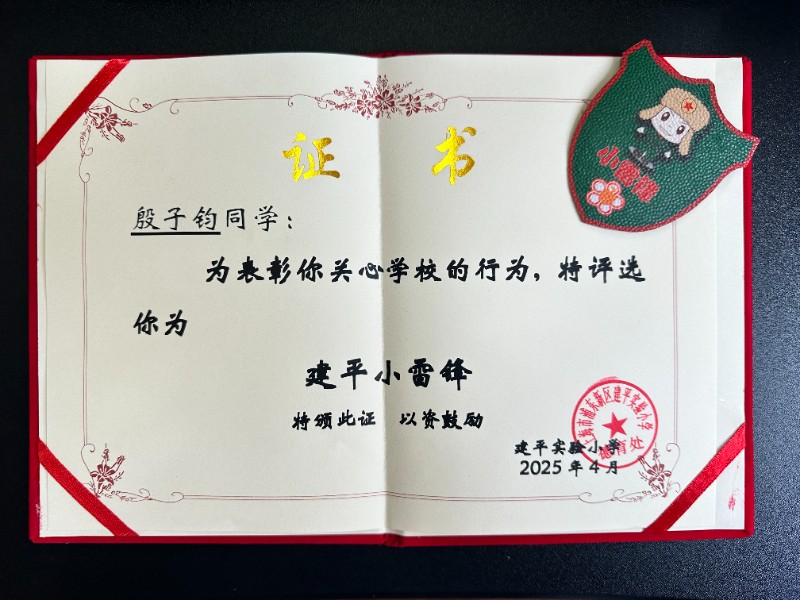 证 书
小雷锋
殷子钧同学：
为表彰你关心学校的行为，特评选
你为
建平小雷锋
特颁此证 以资鼓励
上海市浦东新区建平实验小学
德育处
建平实验小学
2025年4月